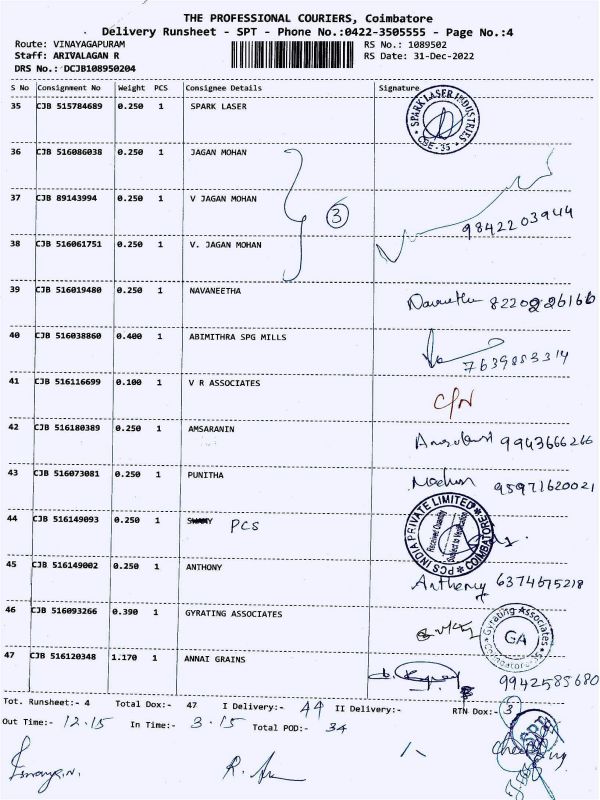 THE PROFESSIONAL COURIERS, Coimbatore
Delivery Runsheet - SPT - Phone No.:0422-3505555 - Page No.:4
Route: VINAYAGAPURAM RS No.: 1089502
Staff: ARIVALAGAN R RS Date: 31-Dec-2022
DRS No.: DCJB108950204
S No Consignment No Weight PCS Consignee Details Signature
35 CJB 515784689 0.250 1 SPARK LASER
SPARK LASER INDUSTRIES CBE-35
36 CJB 516086038 0.250 1 JAGAN MOHAN
37 CJB 89143994 0.250 1 V JAGAN MOHAN
3 9842203944
38 CJB 516061751 0.250 1 V. JAGAN MOHAN
39 CJB 516019480 0.250 1 NAVANEETHA
8220226166
40 CJB 516038860 0.400 1 ABIMITHRA SPG MILLS
7639883314
41 CJB 516116699 0.100 1 V R ASSOCIATES
C/N
42 CJB 516180389 0.250 1 AMSARANIN
9943666266
43 CJB 516073081 0.250 1 PUNITHA
95971620021
44 CJB 516149093 0.250 1 PCS
PCS INDIA PRIVATE LIMITED COIMBATORE
Received Quantity
Subject to Verification
45 CJB 516149002 0.250 1 ANTHONY
Anthony 6374675218
46 CJB 516093266 0.390 1 GYRATING ASSOCIATES
Gyrating Associates GA Coimbatore-35
47 CJB 516120348 1.170 1 ANNAI GRAINS
9942585680
Tot. Runsheet:- 4 Total Dox:- 47 I Delivery:- 44 II Delivery:- RTN Dox:- 3
Out Time:- 12.15 In Time:- 3.15 Total POD:- 34
SPT